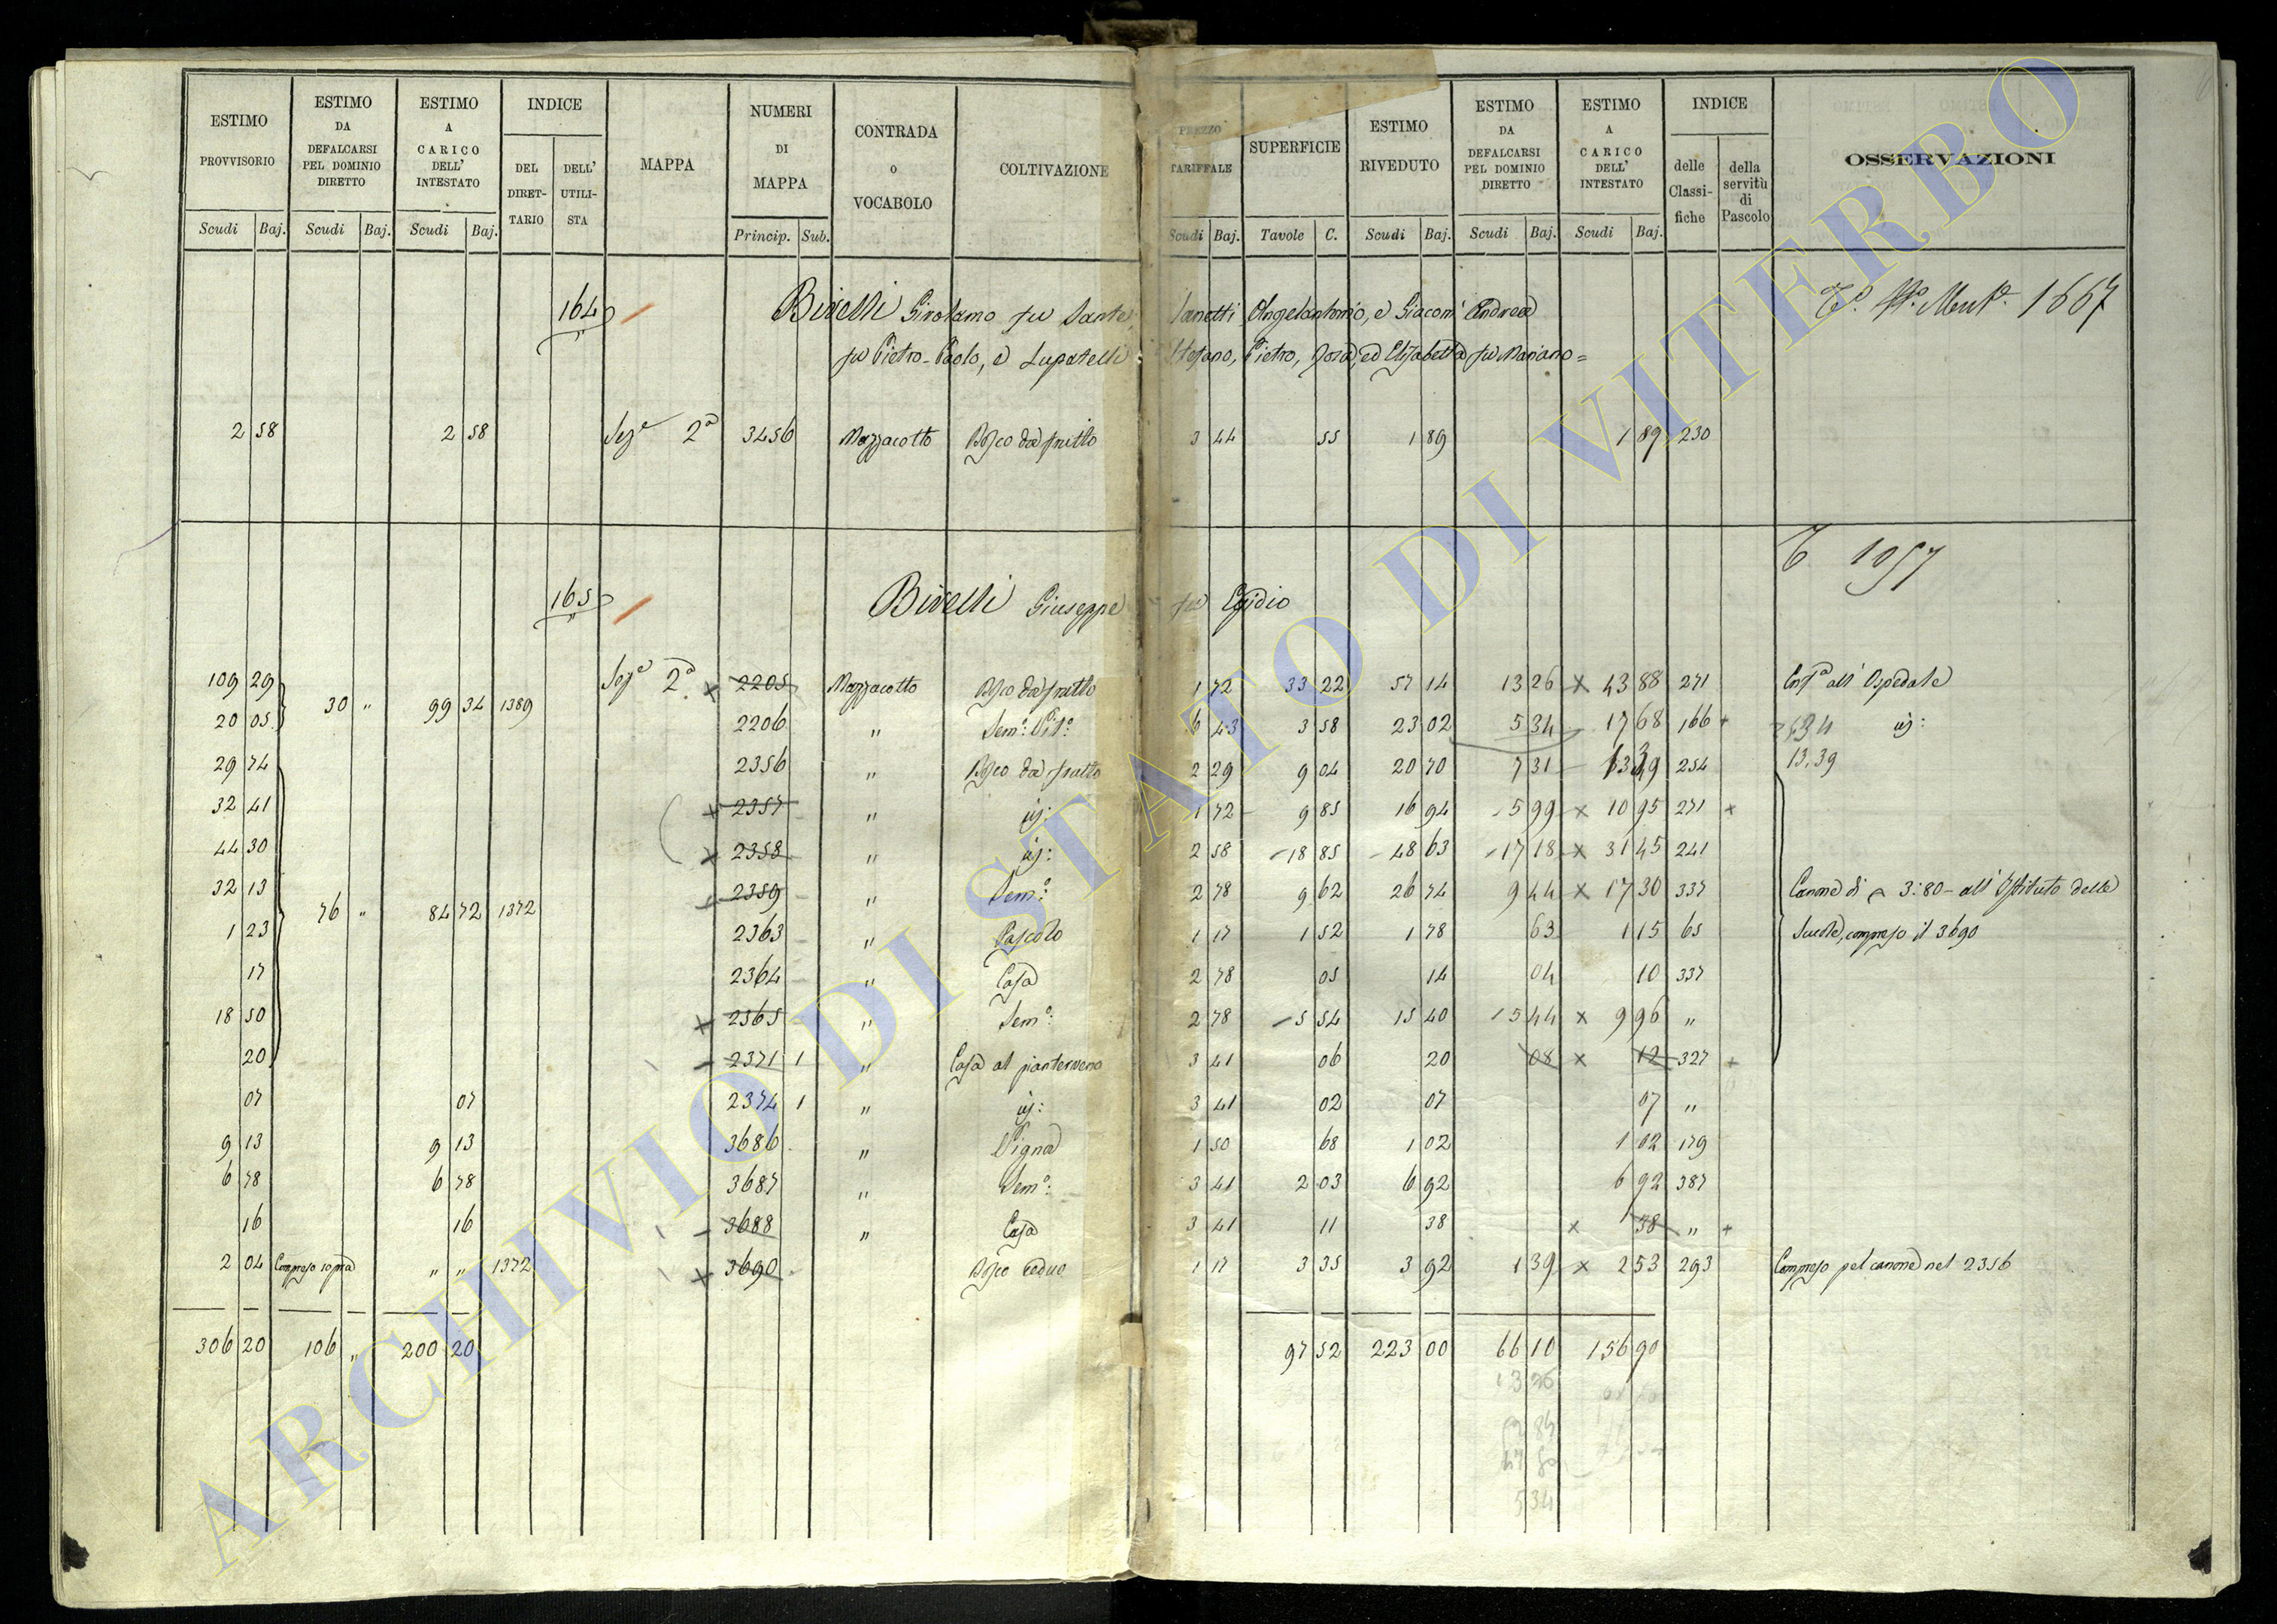 ESTIMO PROVVISORIO Scudi Baj.
ESTIMO DA DEFALCARSI PEL DOMINIO DIRETTO Scudi Baj.
ESTIMO A CARICO DELL' INTESTATO Scudi Baj.
INDICE DEL DIRETTARIO DELL' UTILISTA
MAPPA
NUMERI DI MAPPA Princip. Sub.
CONTRADA o VOCABOLO
COLTIVAZIONE
PREZZO TARIFFALE Scudi Baj.
SUPERFICIE Tavole C.
ESTIMO RIVEDUTO Scudi Baj.
ESTIMO DA DEFALCARSI PEL DOMINIO DIRETTO Scudi Baj.
ESTIMO A CARICO DELL' INTESTATO Scudi Baj.
INDICE delle Classifiche della servitù di Pascolo
OSSERVAZIONI
164 Birelli Girolamo fu Sante, Zanetti Angelantonio, e Giacomi Andrea 1667
fu Pietro-Paolo, e Lupatelli Stefano, Pietro, Rosa, ed Elisabetta fu Mariano=
2 58 2 58 Sez.e 2a 3456 Mazzacotto Bosco da frutto 3 44 55 1 89 1 89 230
1057
165 Birelli Giuseppe fu Egidio
109 29 Sez.e 2a 2205 Mazzacotto Bosco da frutto 1 72 33 22 57 14 13 26 x 43 88 271 all' Ospedale
30 " 99 34 1389
20 05 2206 " Sem.o Vit.o 6 43 3 58 23 02 5 34 17 68 166 + 534
29 74 2356 " Bosco da frutto 2 29 9 04 20 70 7 31 13 39 254 13,39
32 41 x 2357 " 1 72 9 85 16 94 5 99 x 10 95 271 +
44 30 x 2358 " 2 58 18 85 48 63 17 18 x 31 45 241
32 13 2359 " Sem.o 2 78 9 62 26 74 9 44 x 17 30 337 Canone di 3:80 - all' Istituto delle
76 " 84 72 1372
1 23 2363 " Pascolo 1 17 1 52 1 78 63 1 15 65 Scuole, compreso il 3690
17 2364 " Casa 2 78 05 14 04 10 337
18 50 x 2365 " Sem.o 2 78 5 54 15 40 5 44 x 9 96 "
20 2371 1 " Casa al pianterreno 3 41 06 20 08 x 12 327 +
07 07 2374 1 " 3 41 02 07 07 "
9 13 9 13 3686 " Vigna 1 50 68 1 02 1 02 179
6 78 6 78 3687 " Sem.o 3 41 2 03 6 92 6 92 387
16 16 3688 " Casa 3 41 11 38 x 38 " +
2 04 Compreso sopra " " 1372 x 3690 Bosco ceduo 1 17 3 35 3 92 1 39 x 2 53 293 Compreso pel canone nel 2356
306 20 106 " 200 20 97 52 223 00 66 10 156 90
13 26
5 34
ARCHIVIO DI STATO DI VITERBO